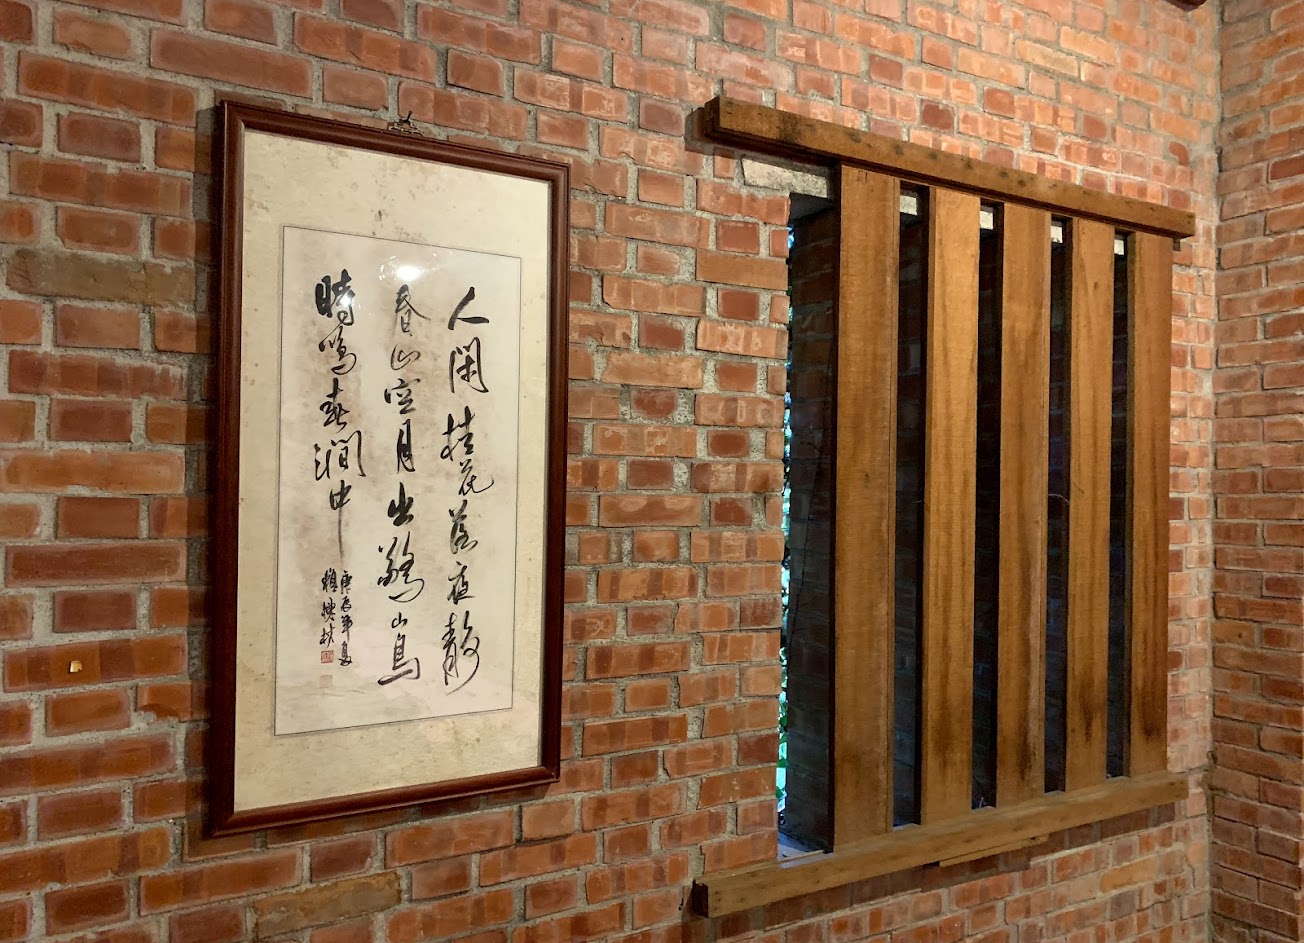 人閑桂花落夜靜
春山空月出驚山鳥
時鳴春澗中
庚辰年夏